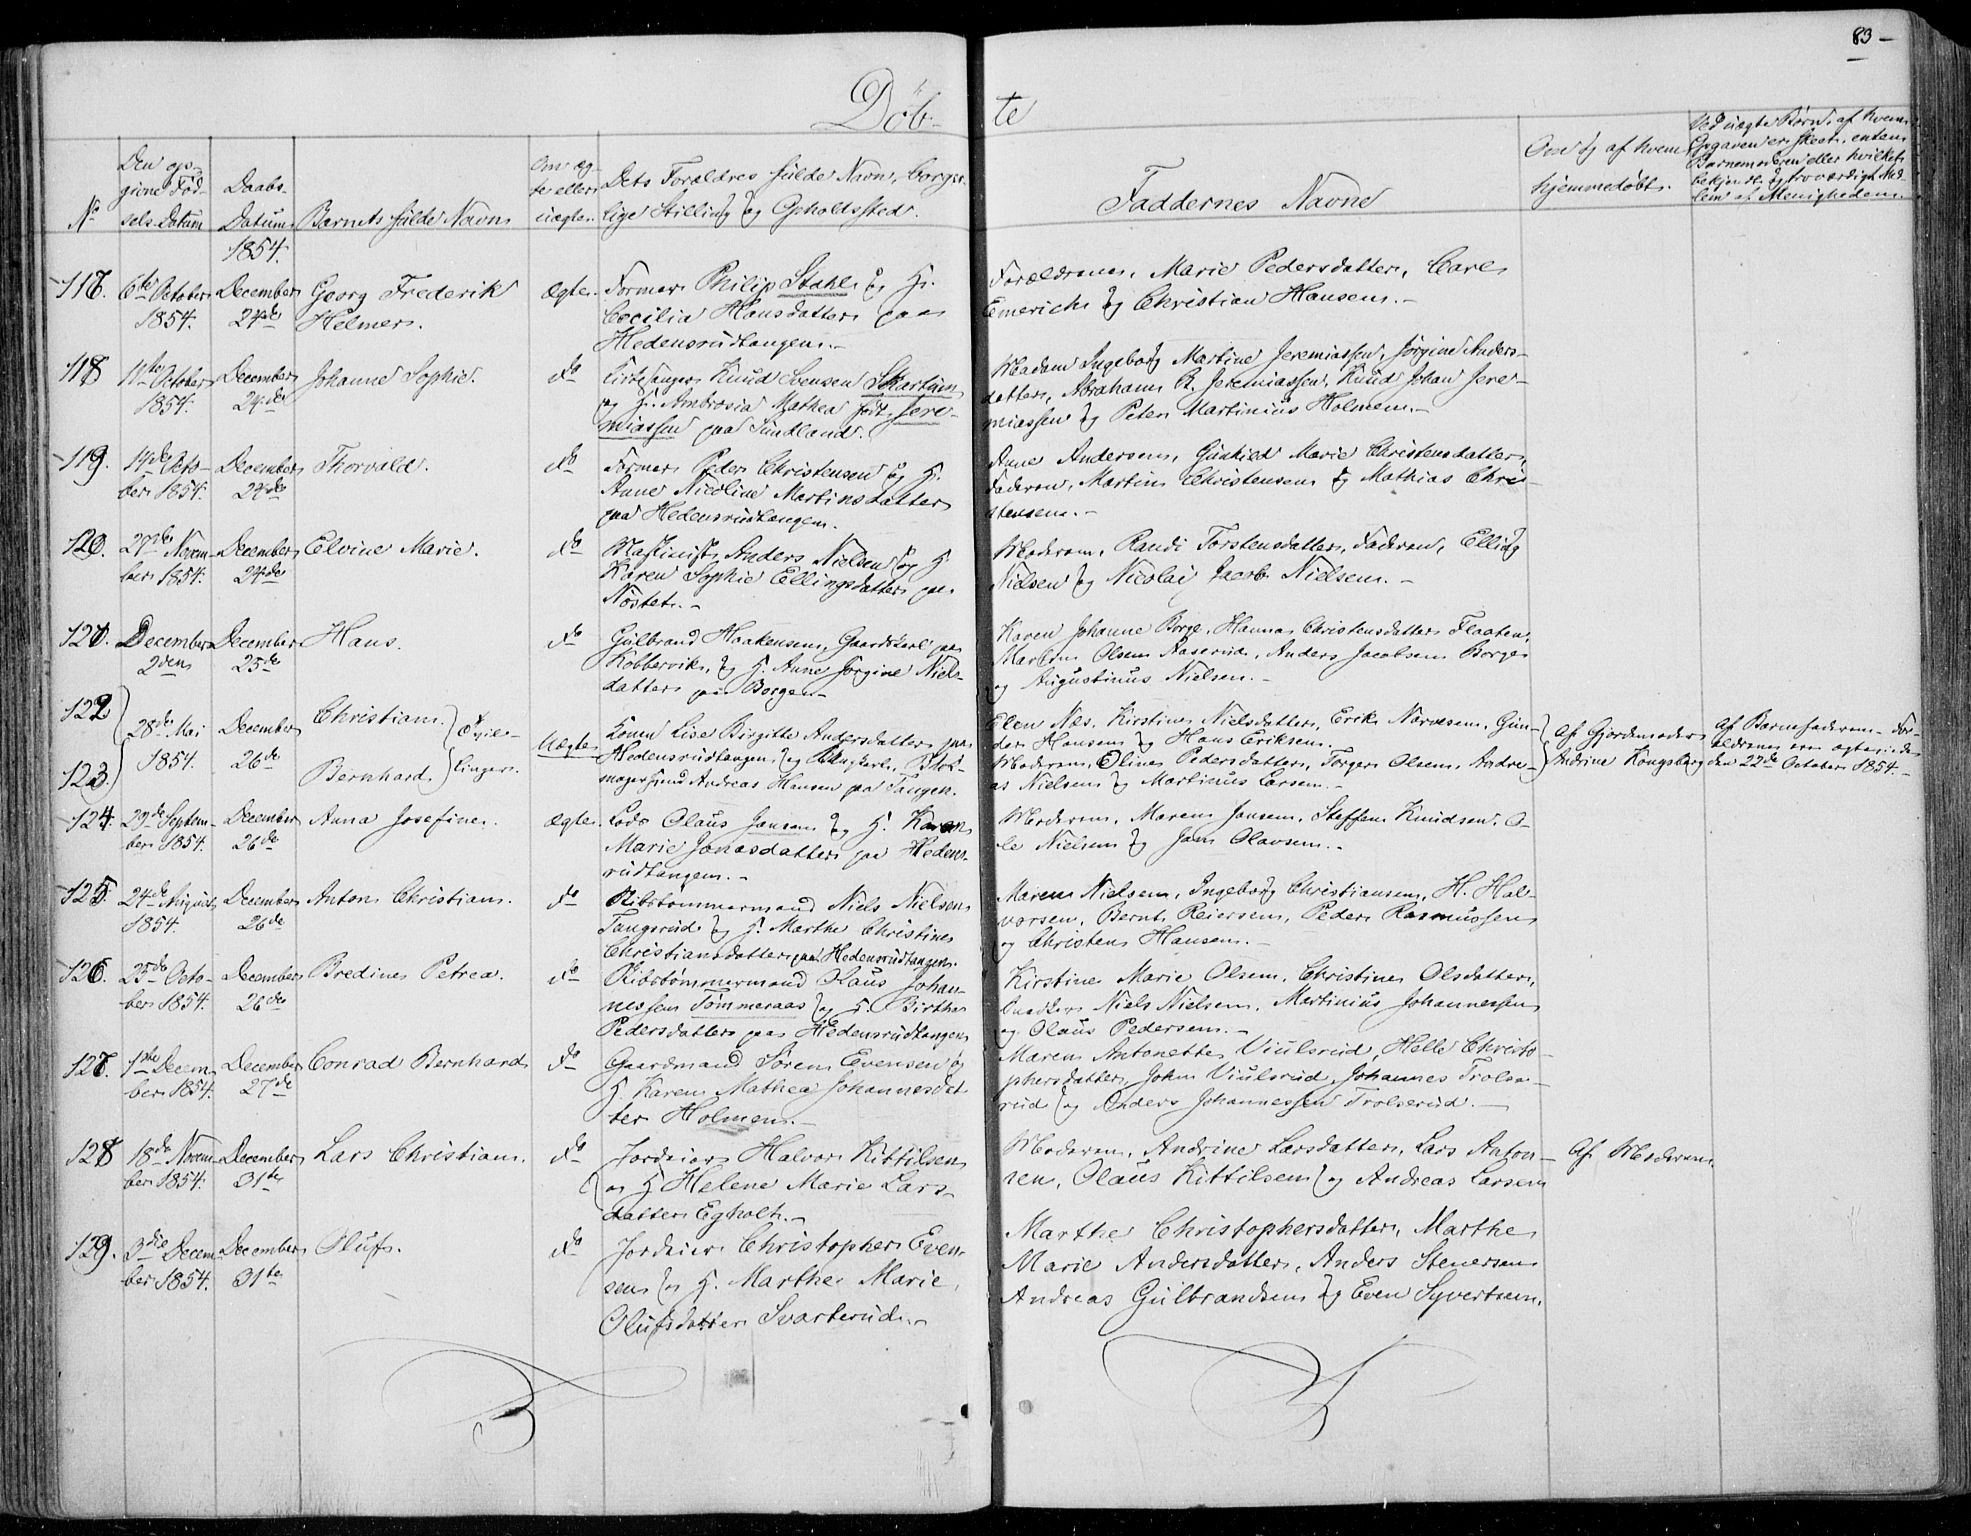 83 -
Döb-
te
No
Den op-
givne Fød-
sels Datum
Daabs
Datum
Barnets fulde Navn
Om æg-
te eller
uægte.
Dets Forældres fulde Navn, borger-
lige Stilling og Opholdssted.
Faddernes Navne
Om og af hvem
hjemmedøbt.
Ved uægte Børn, af hvem
Opgaven er skeet, enten
Barnemoderen eller hvilket
bekjendt og troværdigt Med-
lem af Menigheden.
1854.
117. 6te October December Georg Frederik ægte. Former Philip Stahl og H.
1854. 24de Helmer. Cecilia Hansdatter paa
Hedensrudtangen.-
Forældrene, Marie Pedersdatter, Carl
Emerich og Christian Hansen.-
118 11te October December Johanne Sophie. do Kirkesanger Knud Svensen Skartum
1854. 24de og H. Ambrosia Mathea født Jere-
miassen paa Sundland.
Madam Ingeborg Martine Jeremiassen, Jørgine Anders-
datter, Abraham B. Jeremiassen, Knud Johan Jere-
miassen og Peter Martinius Holmen.-
119. 14de Octo- December Thorvald. do Former Peder Christensen og H.
ber 1854. 24de Anne Nicoline Martinsdatter
paa Hedensrudtangen.
Anne Andersen, Gunhild Marie Christensdatter,
Faderen, Martin Christensen og Mathias Chri-
stensen.-
120. 27de Novem- December Elvine Marie. do Maskinist Anders Nielsen og H.
ber 1854. 24de Karen Sophie Ellingsdatter paa
Nøstet.-
Moderen, Randi Torstensdatter, Faderen, Elling
Nielsen og Nicolai Jacob Nielsen.-
121. December December Hans. do Gulbrand Haakensen, Gaardskarl paa
2den 25de Kobbervik, og H. Anne Jørgine Niels-
datter paa Borgen-
Karen Johanne Borge, Hanna Christensdatter Flaaten,
Marten Olsen Aaserud, Anders Jacobsen Borge
og Augustinus Nielsen.-
122 28de Mai December Christian. Tvil-
1854. 26de
123 Bernhard. linger.
Uægte Konen Lise Birgitte Andersdatter paa
Hedensrudtangen, og Ungkarl, Blok-
magersvend Andreas Hansen paa Tangen.
Elen Næs, Kirstine Nielsdatter, Erik Narvesen, Gun-
der Hansen og Hans Eriksen.
Moderen, Oline Pedersdatter, Torger Olsen, Andre-
as Nielsen og Martinus Larsen.-
Af Gjordemoder
Andrine Kongsberg
Af Barnefaderen. For-
ældrene ere ægteviede
den 22de October 1854.-
124. 29de Septem- December Anna Josefine. ægte. Lods Olaus Jansen og H. Karen
ber 1854. 26de Marie Jonasdatter paa Hedens-
rudtangen.-
Moderen, Maren Jansen, Steffen Knudsen, O-
le Nielsen og Jan Olavsen.-
125. 24de August December Anton Christian. do Skibstømmermand Niels Nielsen
1854. 26de Tangerud og H. Marthe Christine
Christiansdatter paa Hedensrudtangen.
Maren Nielsen, Ingeborg Christiansen, H. Hal-
vorsen, Bernt Reiersen, Peder Rasmussen
og Christen Hansen.-
126. 25de Octo- December Bredine Petrea. do Skibstømmermand Klaus Johan-
ber 1854. 26de nessen Tømmeraas og H. Birthe
Pedersdatter paa Hedensrudtangen
Kirstine Marie Olsen, Christine Olsdatter,
Snedker Niels Nielsen, Martinius Johannessen
og Olaus Pedersen.-
127. 1ste Decem- December Conrad Bernhard do Gaardmand Søren Evensen og
ber 1854. 27de H. Karen Mathea Johannesdat
ter Holmen.-
Maren Antonette Viulsrud, Helle Christo-
phersdatter, John Viulsrud, Johannes Trolse-
rud og Anders Johannessen Trolserud.-
128 18de Novem- December Lars Christian. do Jordeier Halvor Kittilsen
ber 1854. 31te og H. Helene Marie Lars-
datter Egholt.-
Moderen, Andrine Larsdatter, Lars Anton-
sen, Olaus Kittilsen og Andreas Larsen
Af Moderen.
129. 3die Decem- December Oluf. do Jordeier Christopher Even-
ber 1854. 31te sen og H. Marthe Marie
Olufsdatter Svarterud.-
Marthe Christophersdatter, Marthe
Marie Andersdatter, Anders Stenersen
Andreas Gulbrandsen og Even Syvertsen.